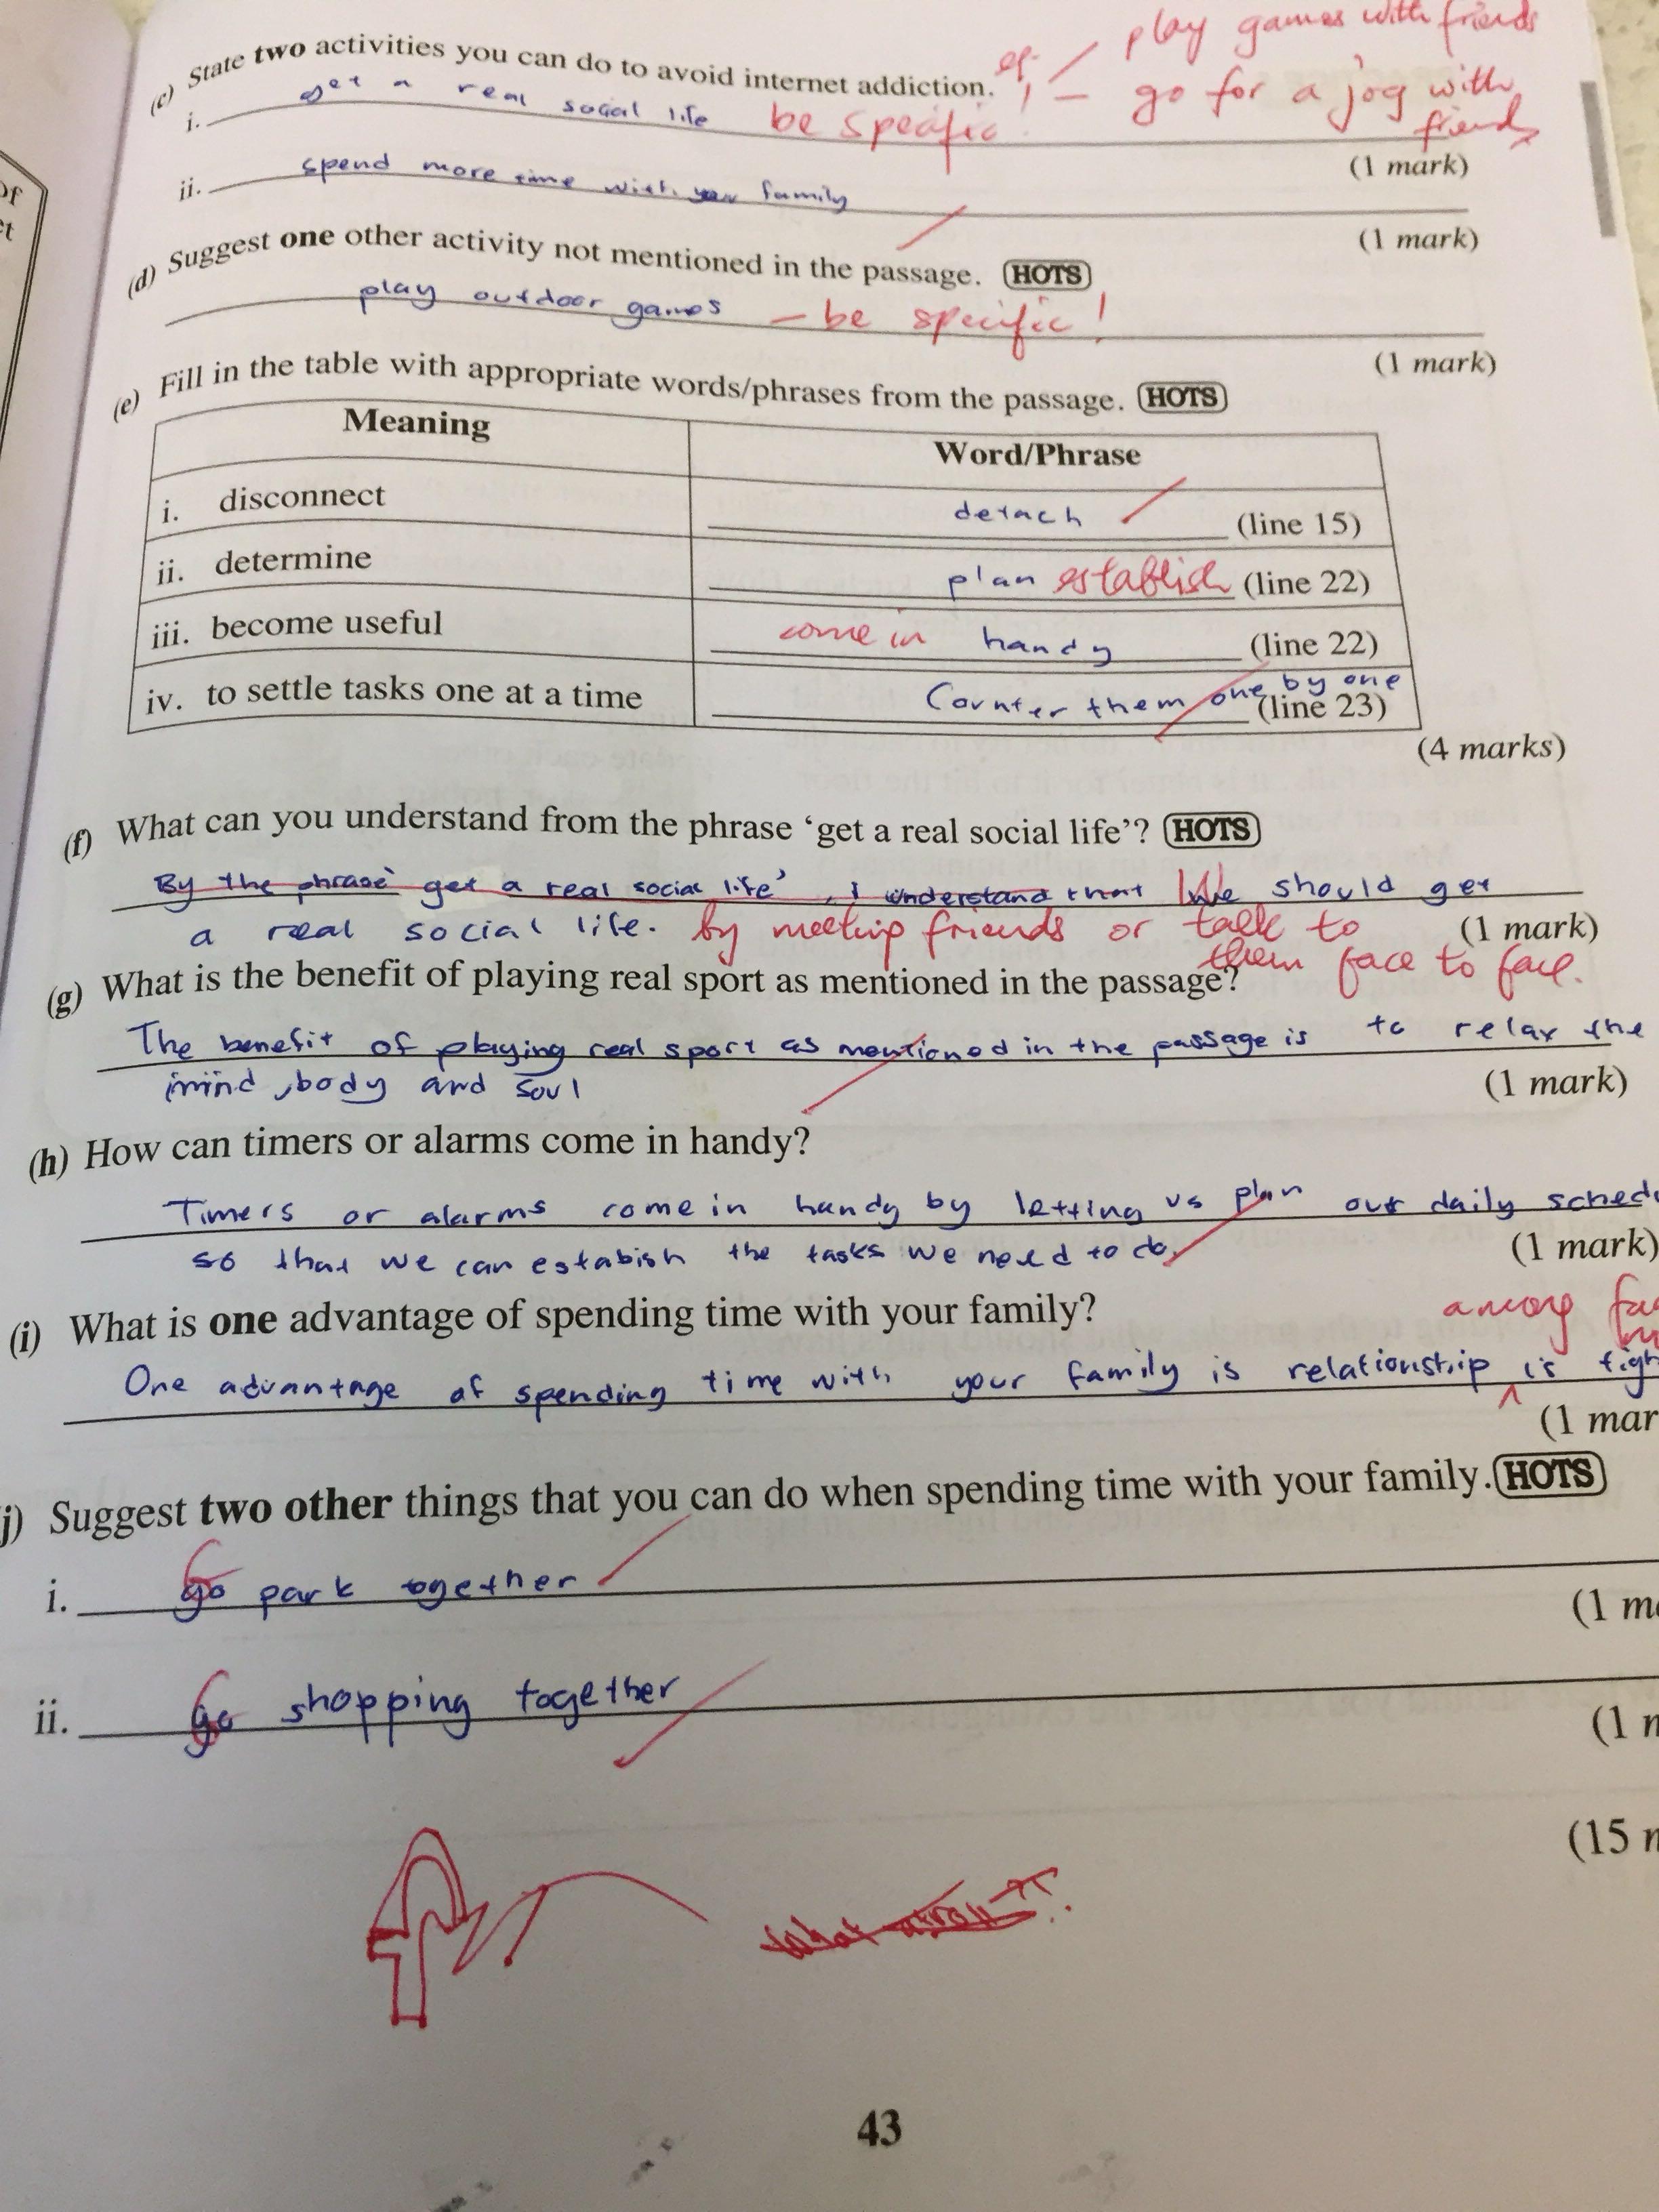 play games with friends
(c) State two activities you can do to avoid internet addiction. eg: – go for a jog with
i. get a real social life be specific! friends
(1 mark)
ii. spend more time with your family
(1 mark)
(d) Suggest one other activity not mentioned in the passage. HOTS
play outdoor games – be specific!
(1 mark)
(e) Fill in the table with appropriate words/phrases from the passage. HOTS
Meaning Word/Phrase
i. disconnect detach (line 15)
ii. determine plan establish (line 22)
iii. become useful come in handy (line 22)
iv. to settle tasks one at a time Counter them one by one (line 23)
(4 marks)
(f) What can you understand from the phrase ‘get a real social life’? HOTS
By the phrase ‘get a real social life’, I understand that We should get
a real social life. by meeting friends or talk to (1 mark)
them face to face.
(g) What is the benefit of playing real sport as mentioned in the passage?
The benefit of playing real sport as mentioned in the passage is to relax the
mind, body and soul (1 mark)
(h) How can timers or alarms come in handy?
Timers or alarms come in handy by letting us plan our daily sched
so that we can estabish the tasks we need to do. (1 mark)
(i) What is one advantage of spending time with your family? among
One advantage of spending time with your family is relationship is tigh
(1 mar
j) Suggest two other things that you can do when spending time with your family. HOTS
i. Go park together
(1 m
ii. Go shopping together
(1
(15
43